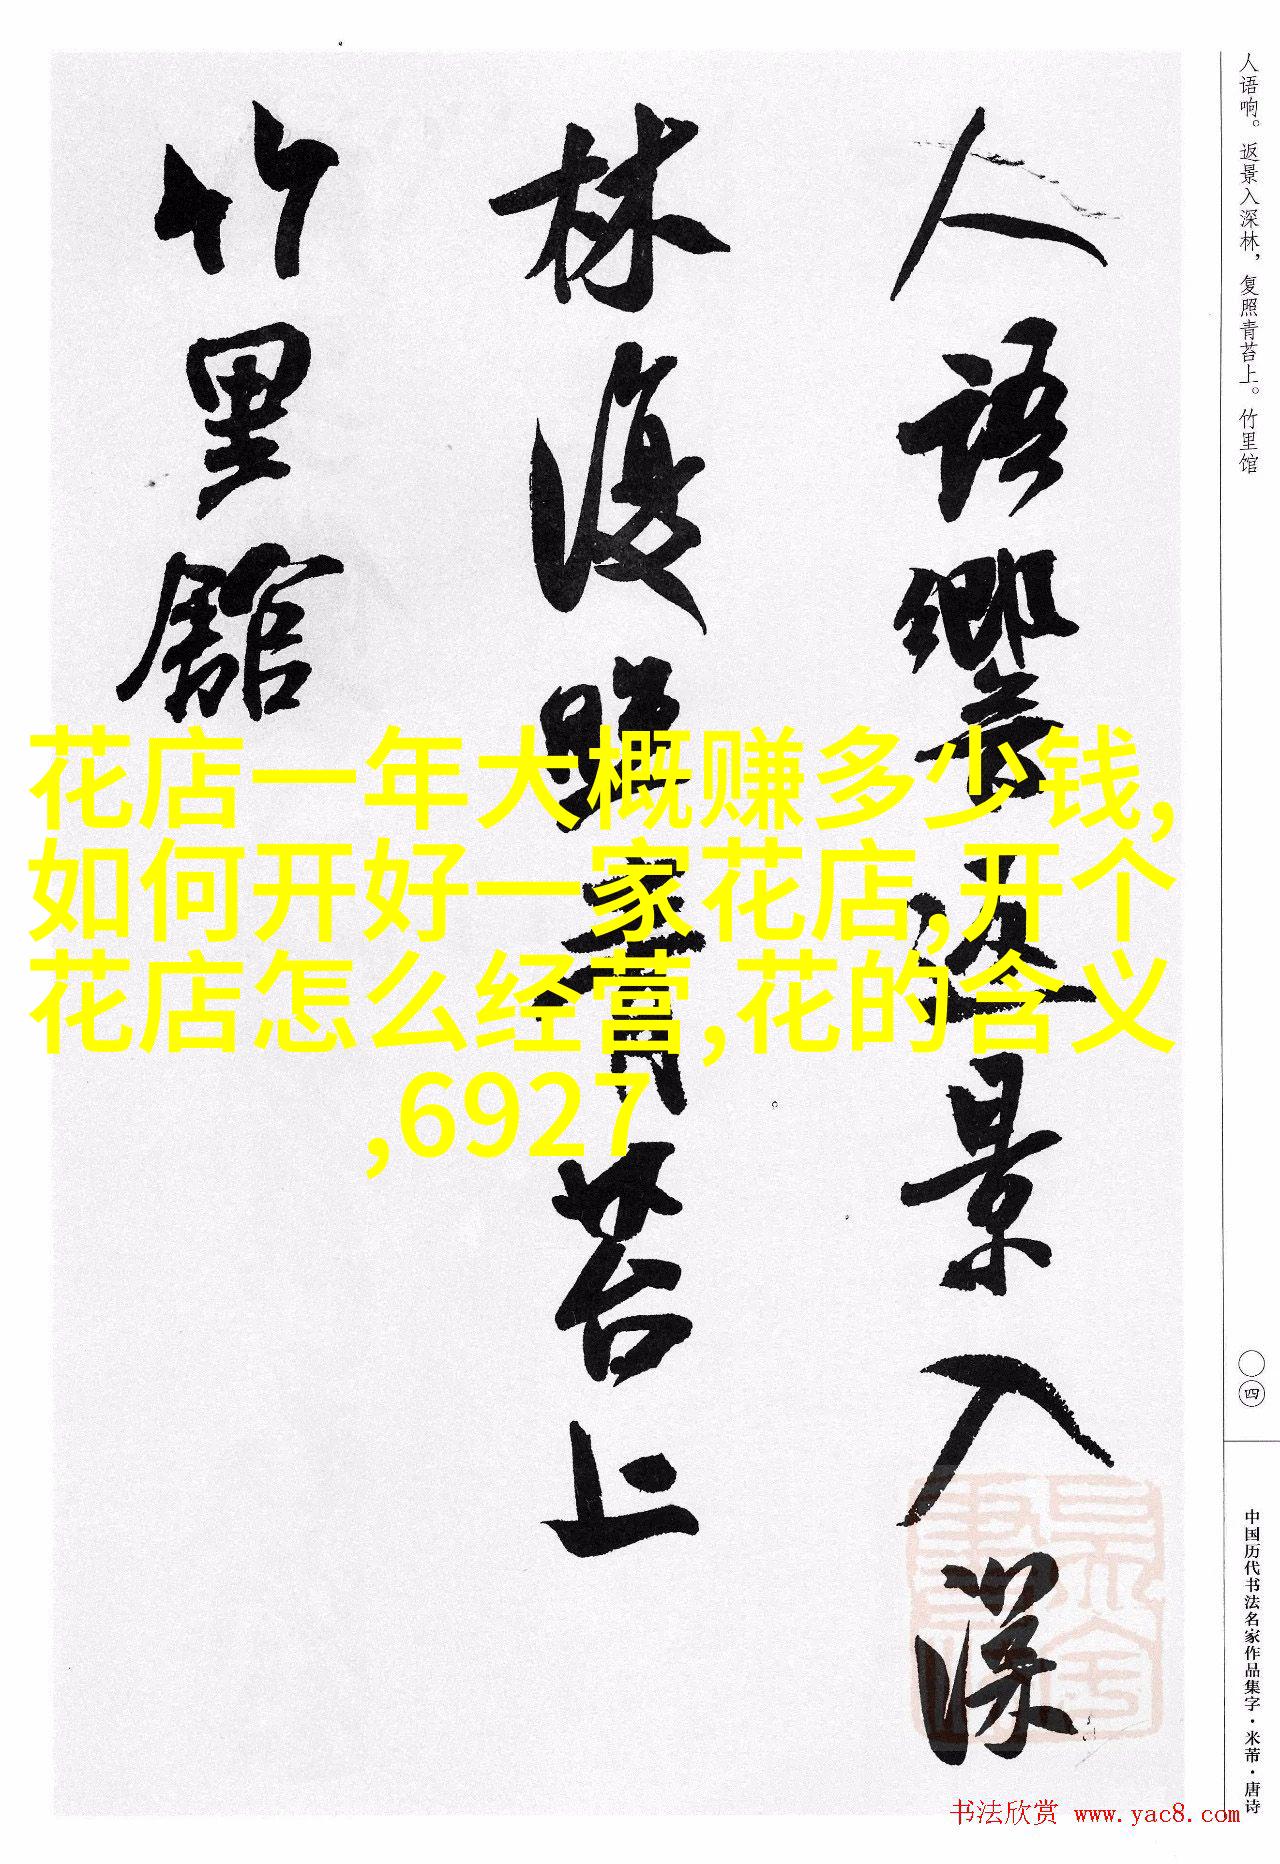 人語響返景入深
林復照青苔上
竹里館
人语响。返景入深林，复照青苔上。竹里馆
〇四
中国历代书法名家作品集字·米芾·唐诗
花店一年大概赚多少钱,
如何开好一家花店,开个
花店怎么经营,花的含义
,6927
书法欣赏 www.yac8.com